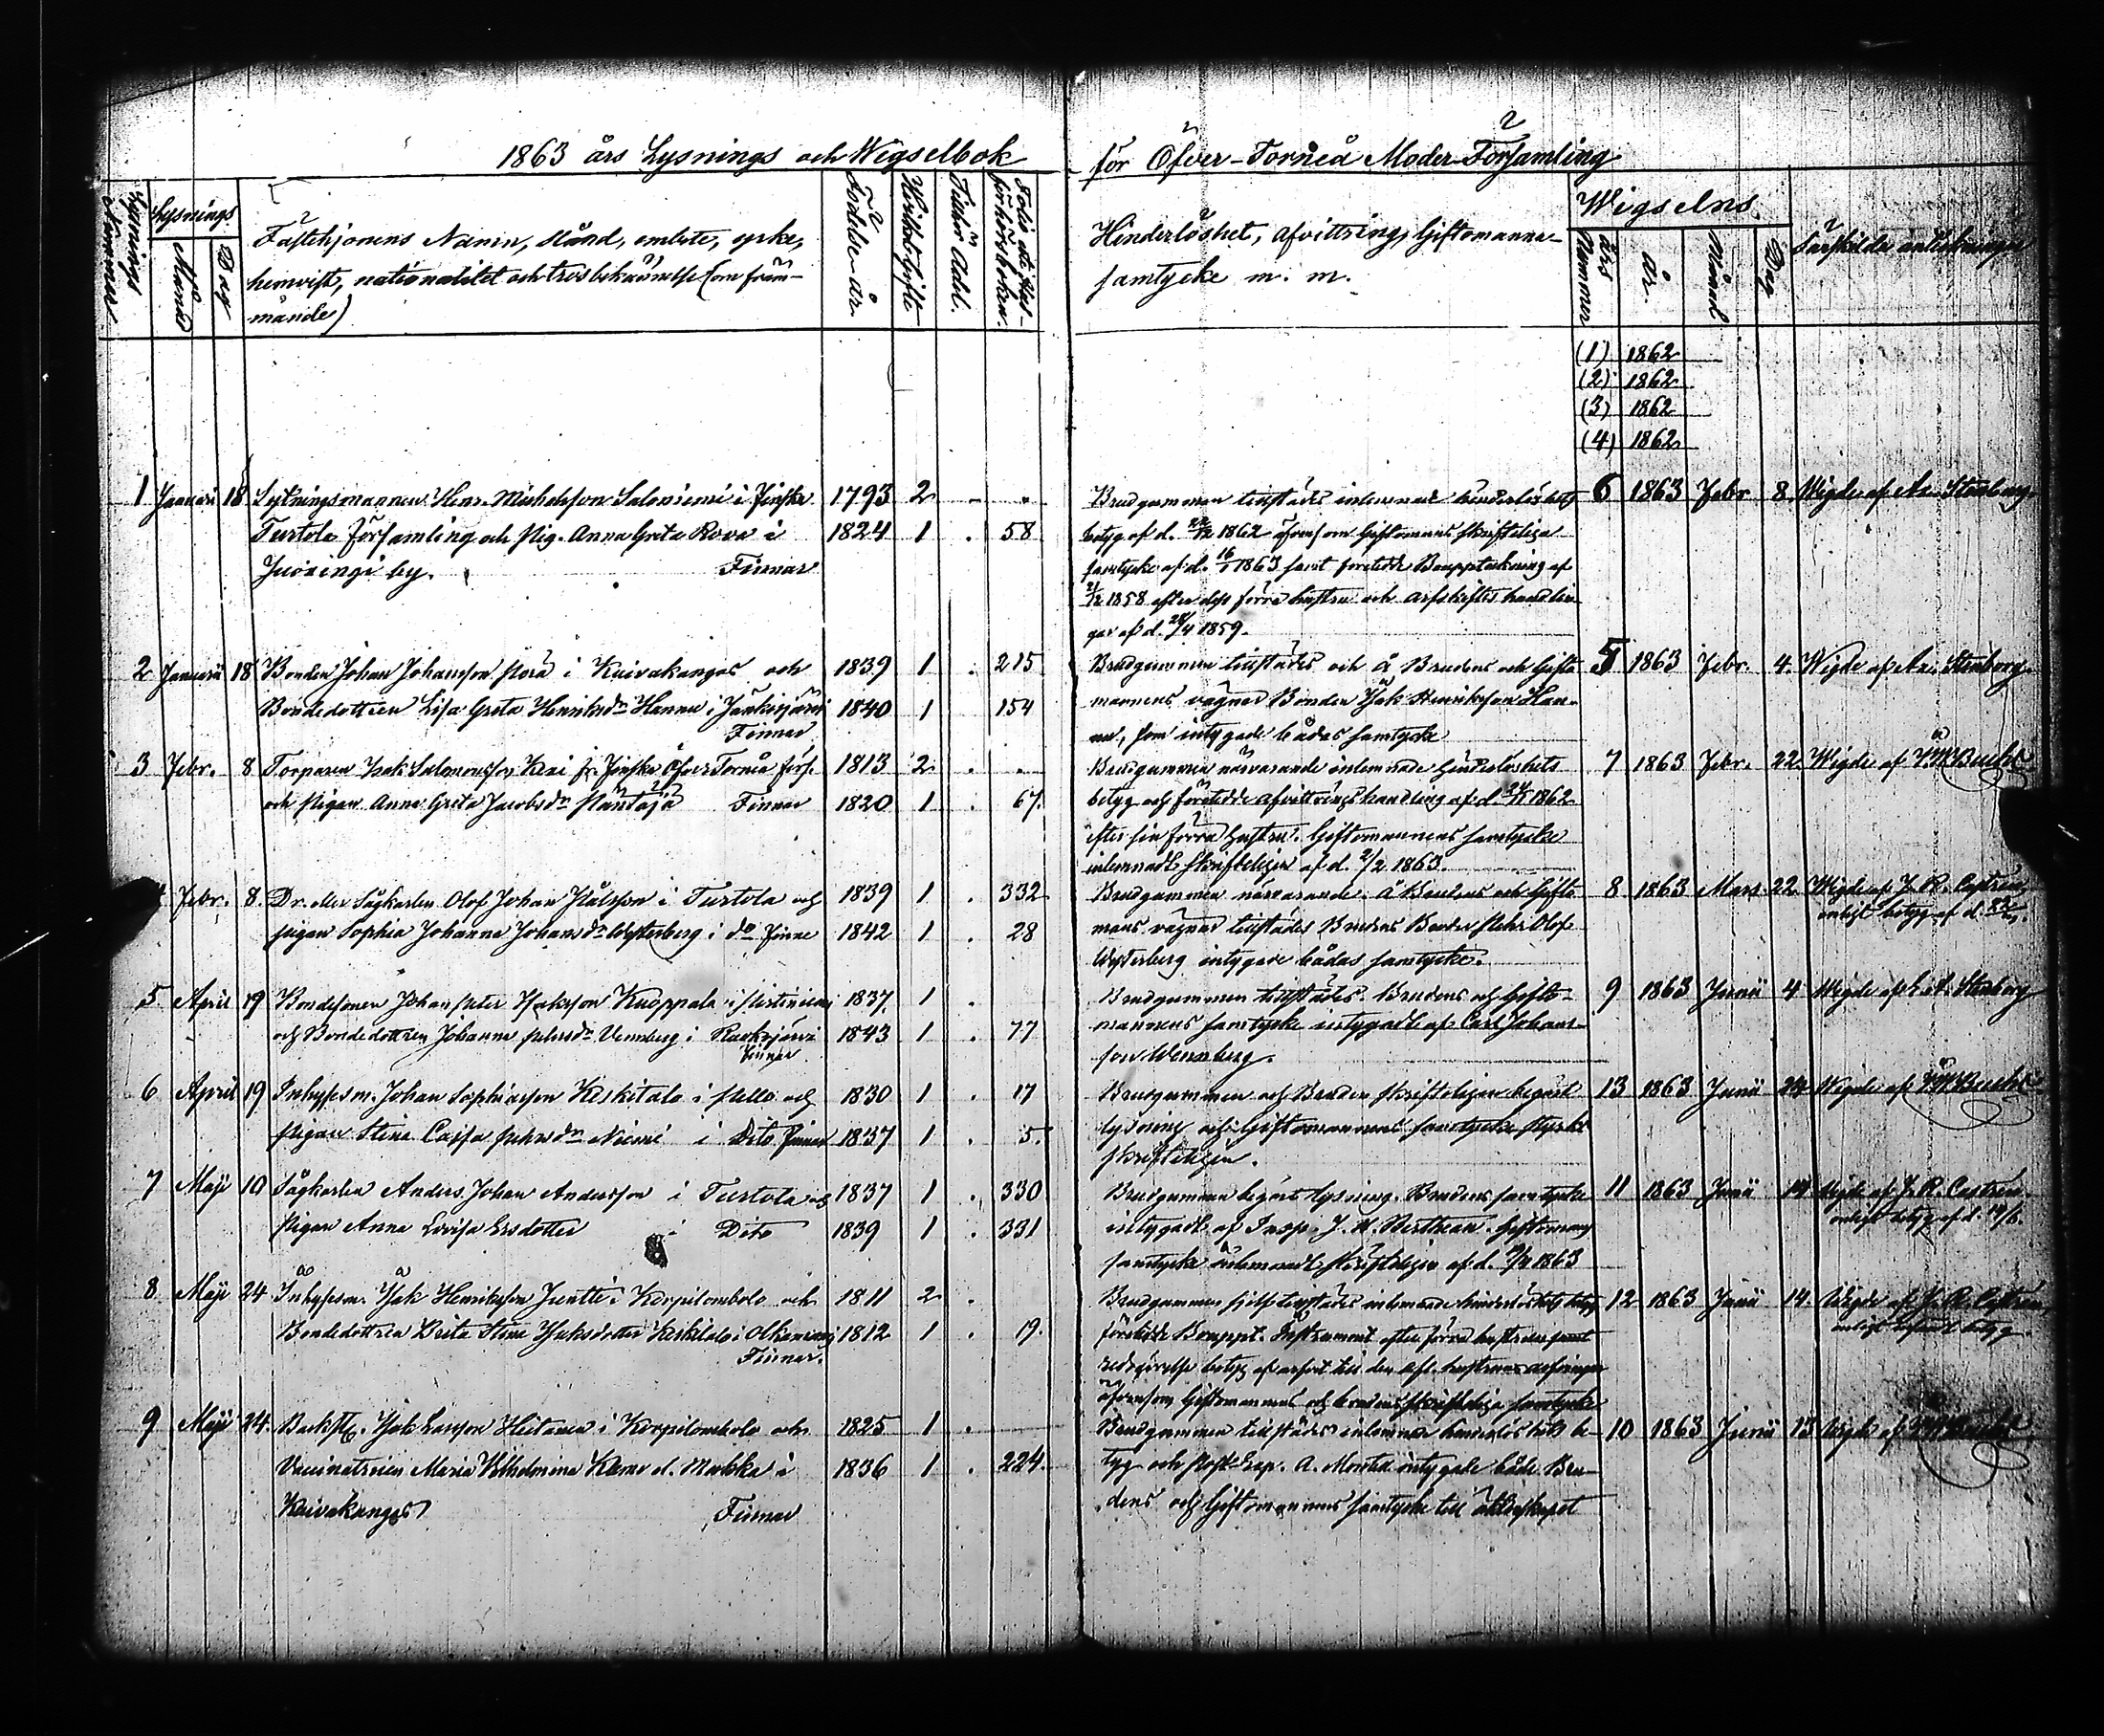 1863 års Lysnings och Wigselbok
för Öfver-Torneå Moder-Församling
Lysnings Nummer
Lysnings
Månad
Dag
Fästehjonens Namn, stånd, embete, yrke,
hemvist, nationalitet och trosbekännelse (om främ-
mande)
Födelse-år.
Folio uti Hus-
förhörsboken.
Hinderlöshet, afvittring, Giftomanna-
samtycke m. m.
Wigselns
års Nummer
år.
Månad
Dag
Särskilda anteckningar
(1) 1862
(2) 1862
(3) 1862
(4) 1862
1 Januari 18 Henr. Michelsson Saloniemi i Finska 1793 2
Turtola församling och Pig. Anna Greta Rova i 1824 1 58
Juoxingi by. Finnar
Brudgummen tillstädes inlemnade hinderlöshets
betyg af d. 1862 äfvensom Giftomans skriftliga
samtycke af d. 16/1 1863 samt företedde Bouppteckning af
1858 efter dess förra hustru och arfskiftes handlin-
gar af d. 1859.
6 1863 Febr. 8 Wigde af Stenborg
2 Januarii 18 Bonden Johan Johansson i Kuivakangas och 1839 1 215
Bondedottren Lisa Greta Henriksdr Hannu i Jänkisjärvi 1840 1 154
Finnar
Brudgummen tillstädes och å Brudens och Gifto-
mannens vägnar Bonden Isak Henriksson Han-
nu, som intygade bådas samtycke
5 1863 Febr. 4. Wigde af Stenborg
3 Febr. 8 Torparen Isak Salomonsson Kexi fr. Finska Öfver Torneå förs. 1813 2
och Pigan Anna Greta Jacobsdr Finnar 1820 1 67.
Brudgummen närvarande inlemnade hinderlöshets
betyg och företedde afvittringshandling af d. 1862
efter sin förra hustru. Giftomannens samtycke
inlemnadt skriftligen af d. 2/2 1863.
7 1863 Febr. 22 Wigde af Bucht
Febr. 8. Dr. eller Sågkarlen Olof Johan i Turtola och 1839 1 332
pigan Sophia Johanna Johansdr Westerberg i do Finne 1842 1 28
Brudgummen närvarande. Å Brudens och Gifto-
mans vägnar tillstädes Brudens Broder Pehr Olof
Westerberg intygare bådas samtycke.
8 1863 Mars 22 Wigde af J. R. Castrén
enligt betyg af d.
5 April 19 Bondesonen Johan Peter Isaksson Kuoppala i 1837 1
och Bondedottren Johanna Pehrsdr Vennberg i Ruokojärvi 1843 1 77
Finnar
Brudgummen tillstädes. Brudens och Gifto-
mannens samtycke intygadt af Carl Johans-
son Wennberg.
9 1863 Junii 4 Wigde af Stenborg
6 April 19 Inhysesm. Johan Sophiasson Keskitalo i Pello och 1830 1 17
Pigan Stina Cajsa Pehrsdr Niemi i Dito Finnar 1837 1 5.
Brudgummen och Bruden skriftligen begärt
lysning och Giftomannens samtycke styrkt
skriftligen.
13 1863 Junii 24 Wigde af Bucht
7 Maji 10 Sågkarlen Anders Johan Andersson i Turtola och 1837 1 330
Pigan Anna Lovisa Ersdotter i Dito 1839 1 331
Brudgummen begärt lysning. Brudens samtycke
intygadt af Insp. J. W. Giftomans
samtycke inlemnadt skriftligen af d. 1863
11 1863 Junii 14 Wigde af J. R. Castrén
enligt betyg af d. 14/6.
8 Maji 24 Inhysesm. Isak Henriksson Juntti i Korpilombolo och 1811 2
Bondedottren Brita Stina Isaksdotter Keskitalo i 1812 1 19.
Finnar.
Brudgummen sjelf tillstädes inlemnade hinderlöshets betyg
företedde Bouppt. Instrument efter förra hustrun samt
äfvensom Giftomannens och brudens skriftliga samtycke
12 1863 Junii 14 Wigde af J. R. Castrén
enligt betyg.
9 Maji 24. Isak Larsson Hietanen i Korpilombolo och 1825 1
Vaccinatricen Maria Wilhelmina i 1836 1 224.
Kuivakangas Finnar
Brudgummen tillstädes inlemnade hinderlöshets be-
tyg och A. Montell intygade både Bru-
dens och Giftomannens samtycke till äktenskapet
10 1863 Junii 13 Wigde af Bucht